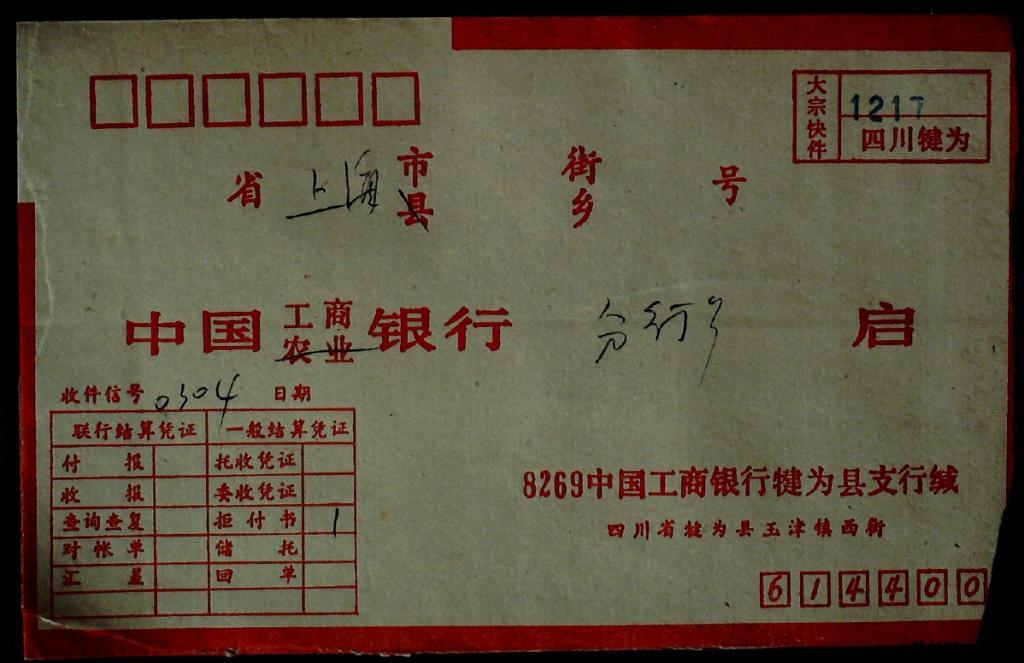 大宗快件
1217
四川犍为
省 上海 市县 街乡 号
中国 工商农业 银行 分行 启
收件信号 0304 日期
联行结算凭证 一般结算凭证
付报 托收凭证
收报 委收凭证
查询查复 拒付书 1
对帐单 储托
汇差 回单
8269中国工商银行犍为县支行缄
四川省犍为县玉津镇西街
614400